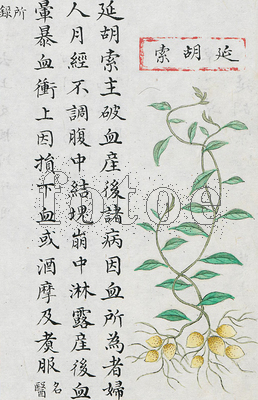 延胡索
延胡索主破血産後諸病因血所為者婦
人月經不調腹中結塊崩中淋露産後血
暈暴血衝上因損下血或酒摩及煑服名醫
所錄
fotoe